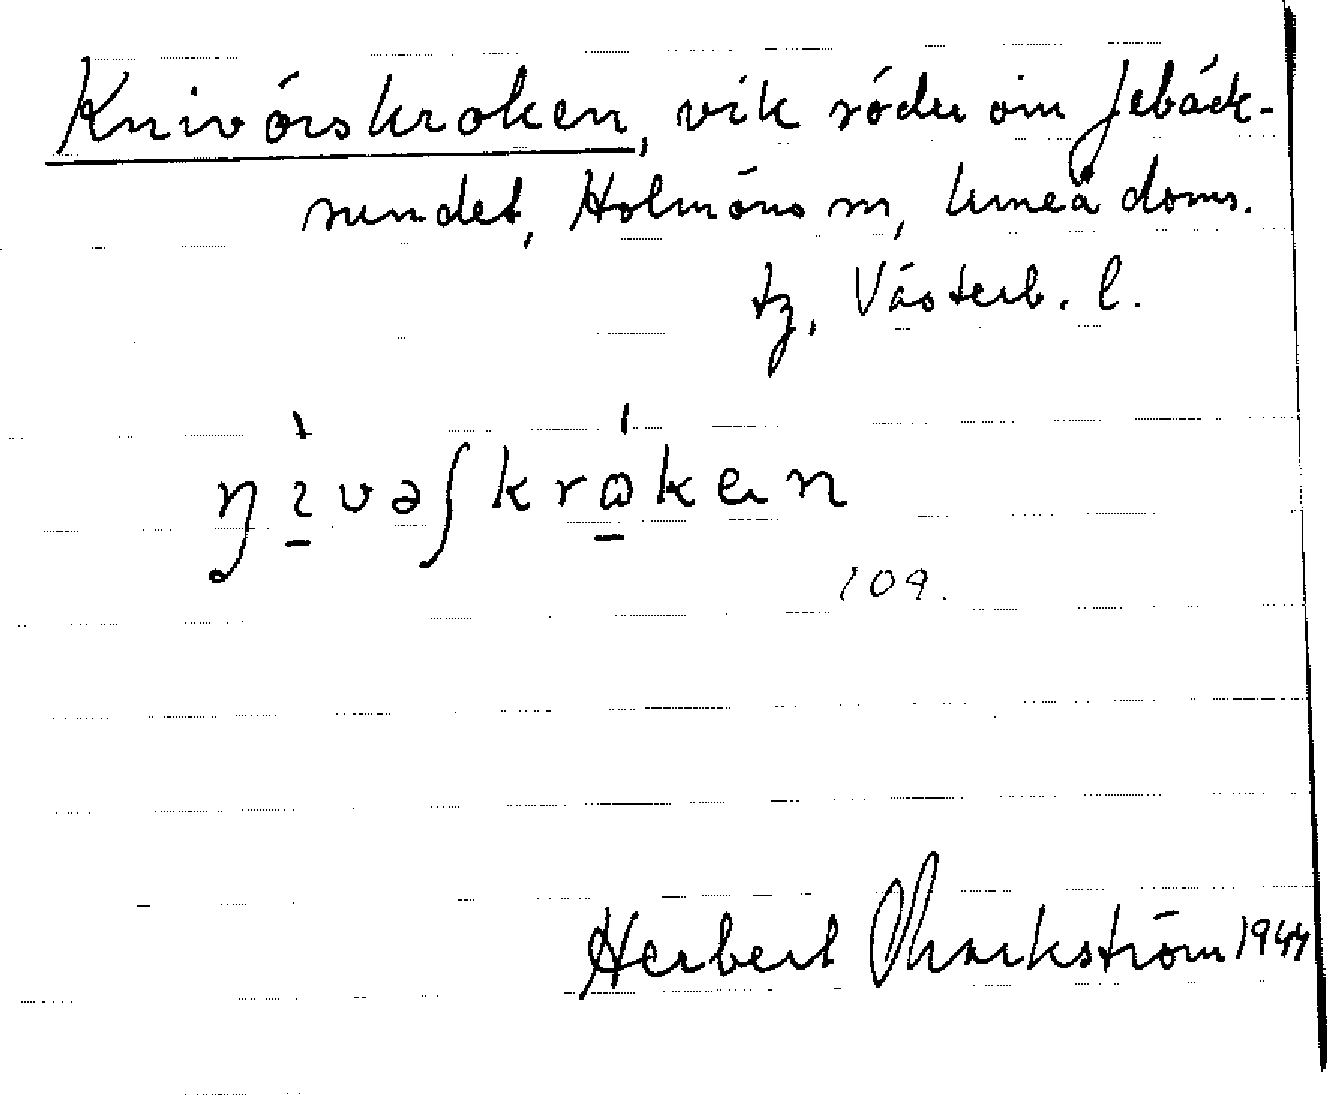 Knivörskroken, vik söder om Jebäck-
sundet, Holmöns sn, Umeå doms.
tg, Västerb. l.
ŋìvəʃkrɷ́ken
109.
Herbert Markström 1944